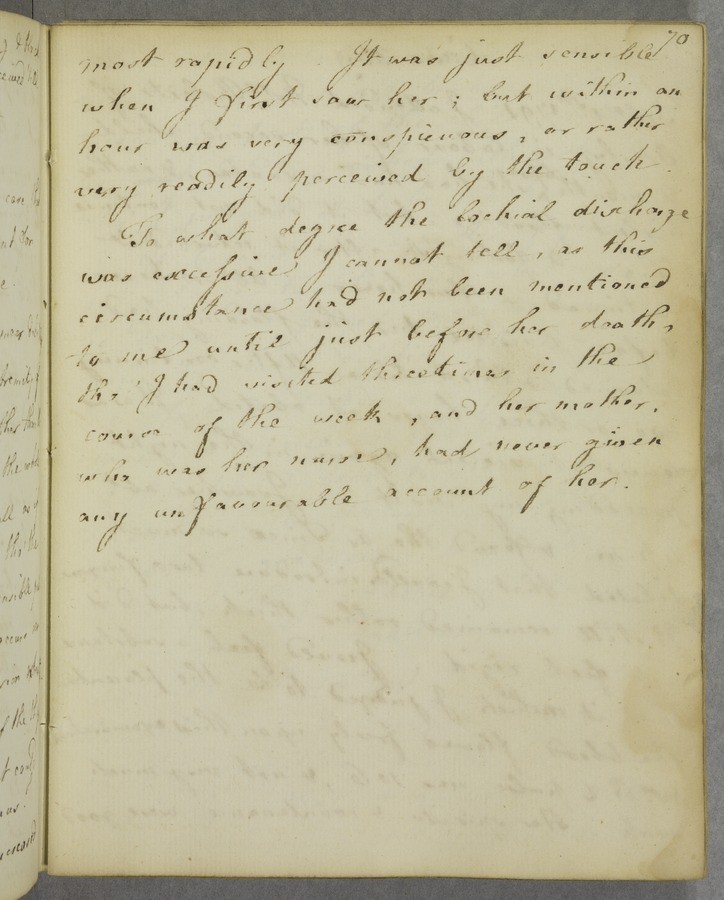 70
most rapidly. It was just sensible
when I first saw her; but within an
hour was very conspicuous, or rather
very readily perceived by the touch.
To what degree the lochial discharge
was excessive I cannot tell, as this
circumstance had not been mentioned
to me until just before her death,
tho' I had visited three times in the
course of the week, and her mother,
who was her nurse, had never given
any unfavourable account of her.